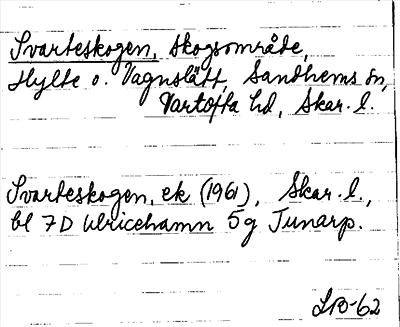 Svarteskogen, skogsområde,
Hylte o. Vagnslätt, Sandhems sn,
Vartofta hd, Skar. l.
Svarteskogen, ek (1961), Skar. l.,
bl 7D Ulricehamn 5g Junarp.
LB-62